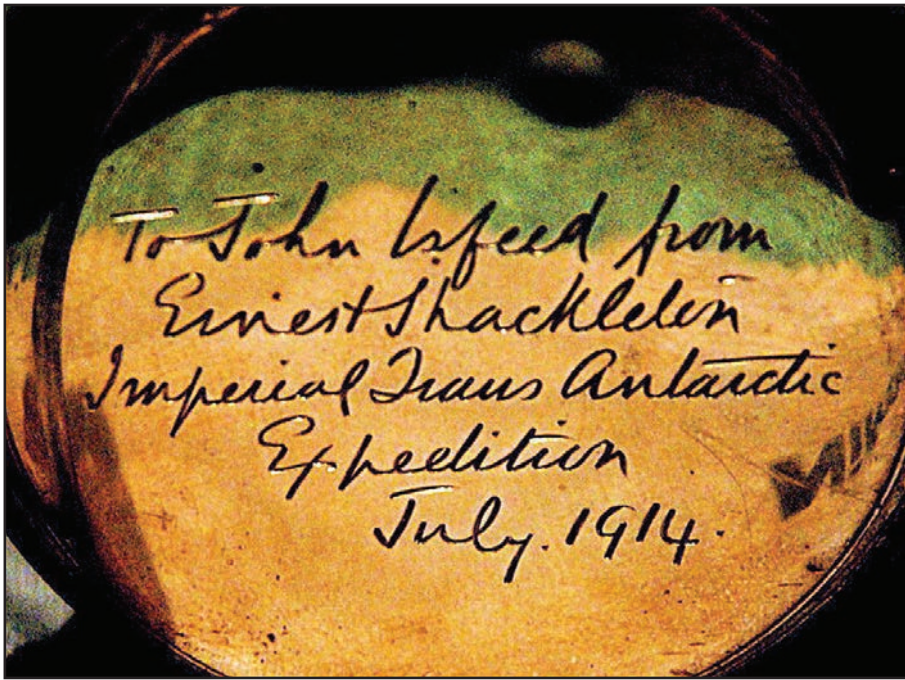 To John from
Ernest Shackleton
Imperial Trans Antarctic
Expedition
July. 1914.